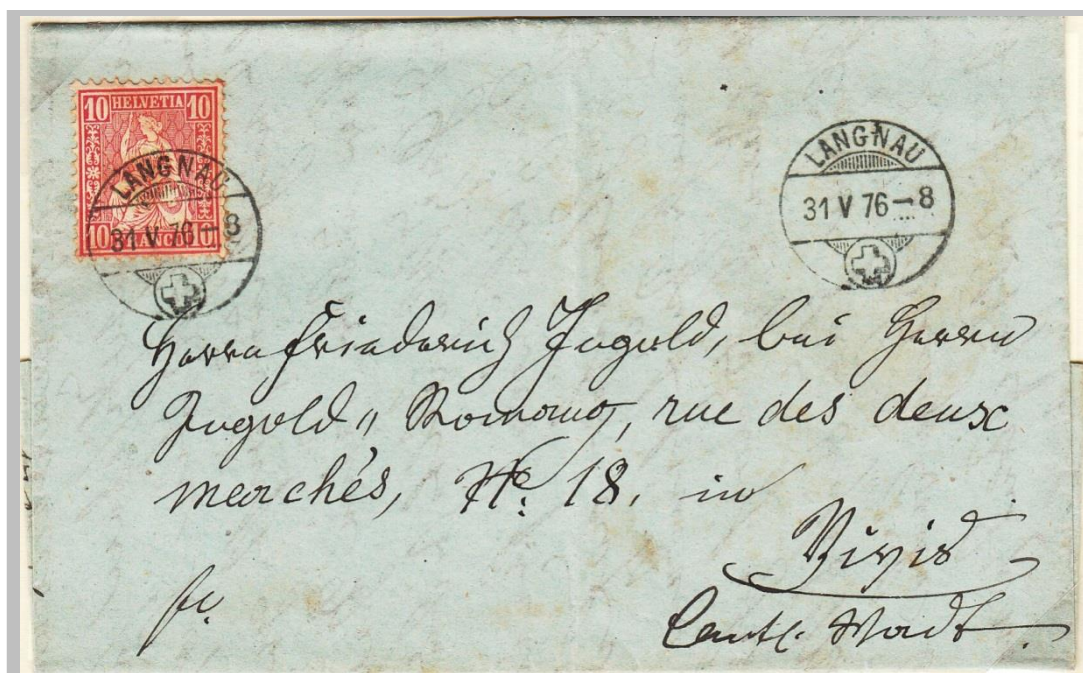 10 HELVETIA 10
10 FRANCO 10
LANGNAU
31 V 76 – 8
LANGNAU
31 V 76 – 8
Herrn Friederich Ingold, bei Herrn
Ingold " Romang, rue des deux
marchés, No. 18. in
Vivis
Cant. Wadt.
fr.